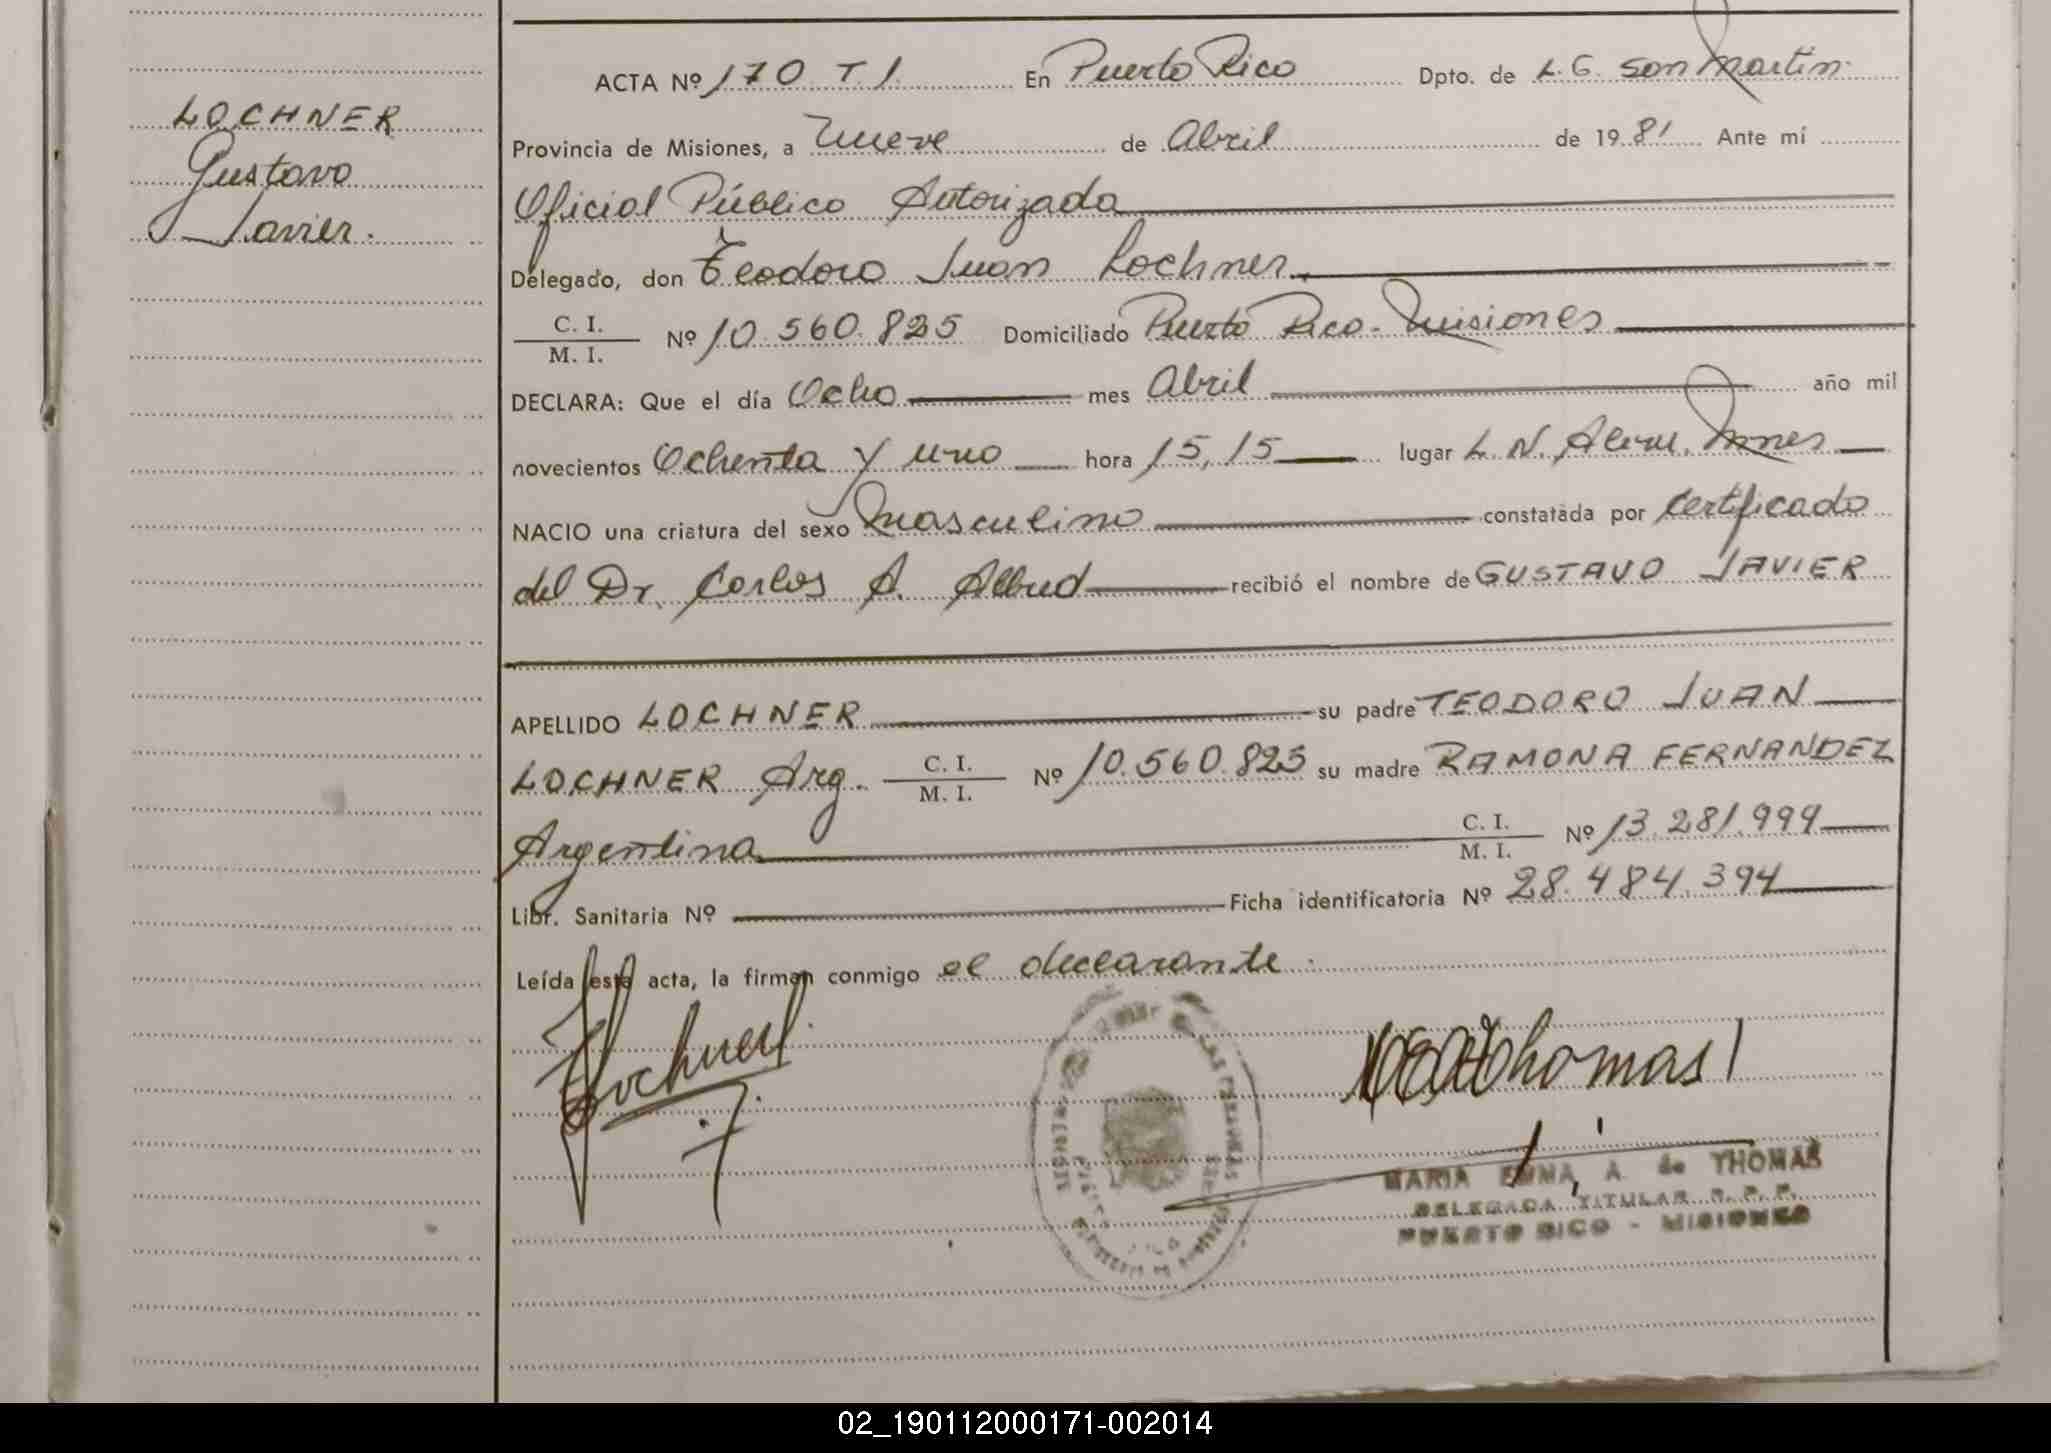 LOCHNER
Gustavo
Javier.
ACTA Nº 170 T I. En Puerto Rico Dpto. de L. G. San Martín
Provincia de Misiones, a Nueve de Abril de 1981 Ante mí
Oficial Público Autorizada
Delegado, don Teodoro Juan Lochner
C. I.
M. I. Nº 10.560.825 Domiciliado Puerto Rico - Misiones
DECLARA: Que el día Ocho mes Abril año mil
novecientos Ochenta y uno hora 15,15 lugar L. N. Alem. Mnes
NACIO una criatura del sexo Masculino constatada por Certificado
del Dr. Carlos A. recibió el nombre de GUSTAVO JAVIER
APELLIDO LOCHNER su padre TEODORO JUAN
LOCHNER Arg. C. I. M. I. Nº 10.560.825 su madre RAMONA FERNANDEZ
Argentina C. I. M. I. Nº 13.281.999
Libr. Sanitaria Nº Ficha identificatoria Nº 28.484.394
Leída esta acta, la firman conmigo el declarante.
Lochner
Thomas
MARIA EMMA A. de THOMAS
DELEGADA TITULAR R. P. P.
PUERTO RICO - MISIONES
02_190112000171-002014